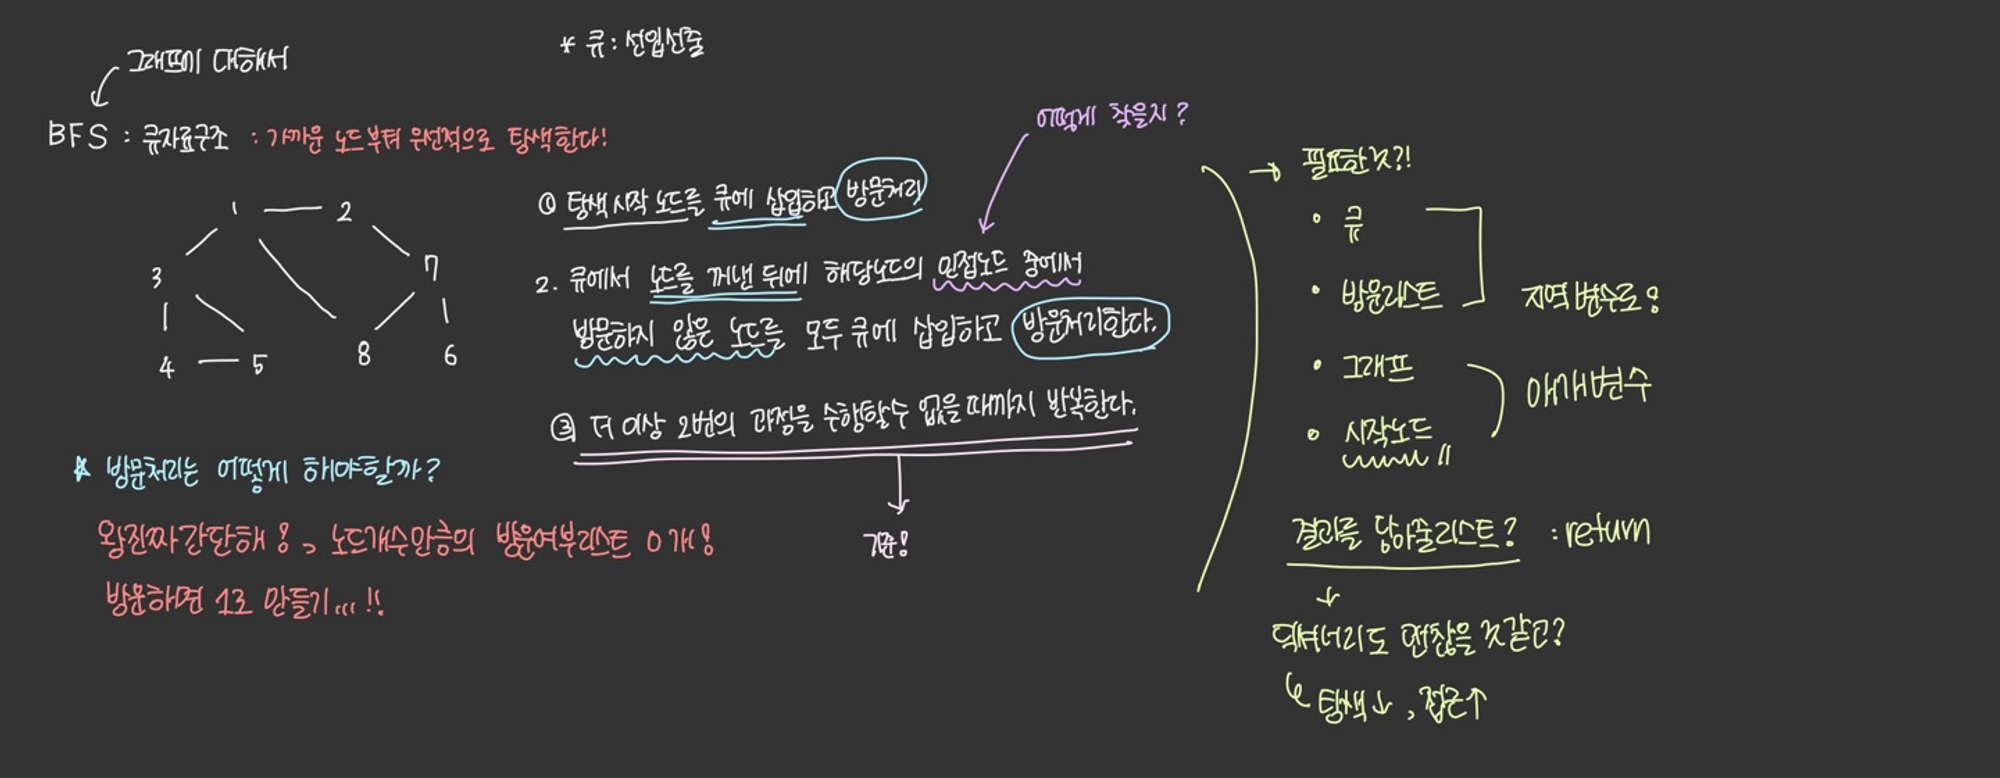 그래프에 대해서
* 큐 : 선입선출
BFS : 큐자료구조 : 가까운 노드부터 우선적으로 탐색한다!
어떻게 찾을지?
1 2
3 7
4 5 8 6
① 탐색 시작 노드를 큐에 삽입하고 방문처리
2. 큐에서 노드를 꺼낸 뒤에 해당노드의 인접노드 중에서
방문하지 않은 노드를 모두 큐에 삽입하고 방문처리한다.
③ 더 이상 2번의 과정을 수행할수 없을때까지 반복한다.
기준!
* 방문처리는 어떻게 해야할까?
왕진짜간단해! 노드개수만큼의 방문여부리스트 0개!
방문하면 1로 만들기...!!
→ 필요한것?!
• 큐
• 방문리스트
지역변수로!
• 그래프
• 시작노드
매개변수
결과를 담아줄리스트? : return
딕셔너리도 괜찮을것같고?
탐색↓, 접근↑